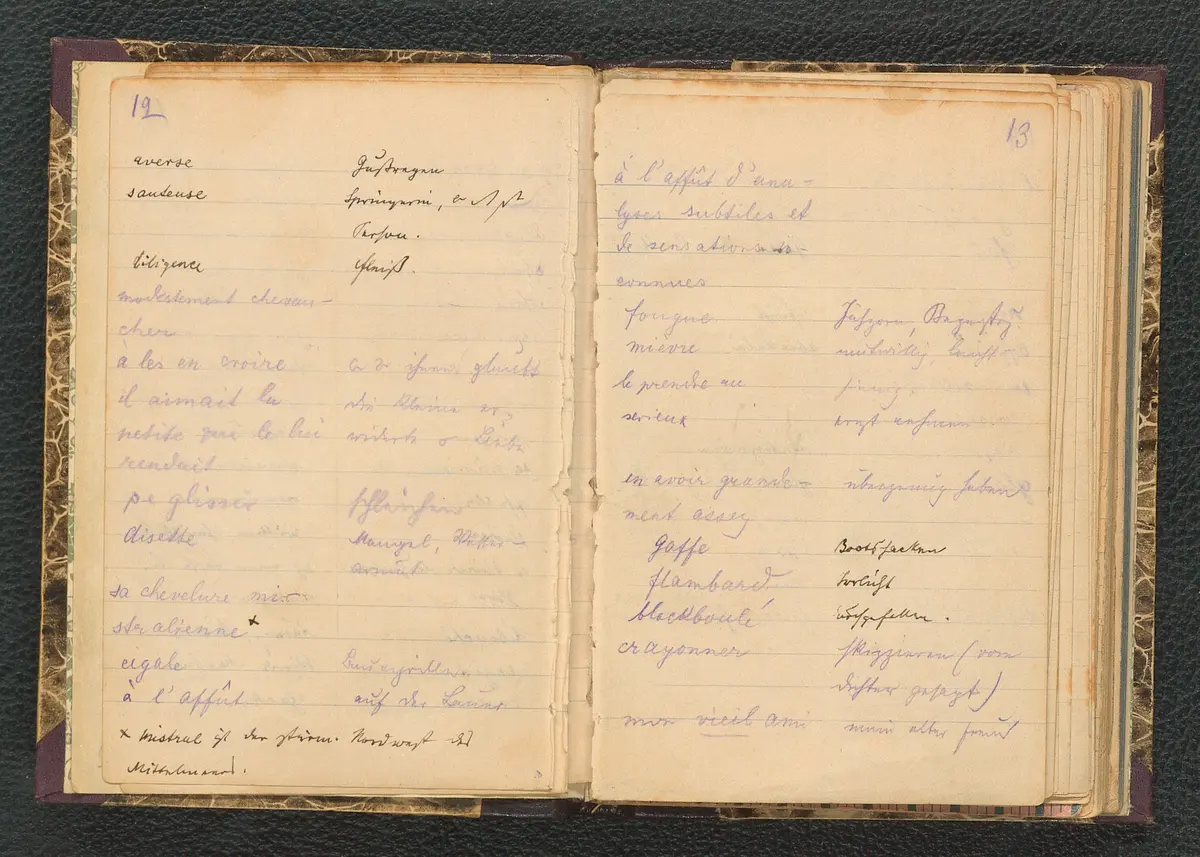 12
averse Gußregen
sauteuse Springerin,
Person.
diligence Fleiß.
modestement chevau-
cher
à les en croire ihnen glaubt
il aimait la die Kleine er,
petite qui le lui widerte
rendait
se glisser schleichen
disette Mangel,
armut
sa chevelure mi-
stralienne x
cigale Baumgrille
à l'affût auf der Lauer
x Mistral ist der stürm. Nordwest des
Mittelmeers.
13
à l'affût d'ana-
lyses subtiles et
de sensations in-
connues
fougue Jähzorn,
mièvre mutwillig, leicht-
le prendre au sinnig.
serieux ernst nehmen
en avoir grande- übergenug haben
ment assez
gaffe Bootshaken
flambard Irrlicht
blackboulé durchgefallen.
crayonner skizzieren (vom
Dichter gesagt)
mon vieil ami mein alter Freund